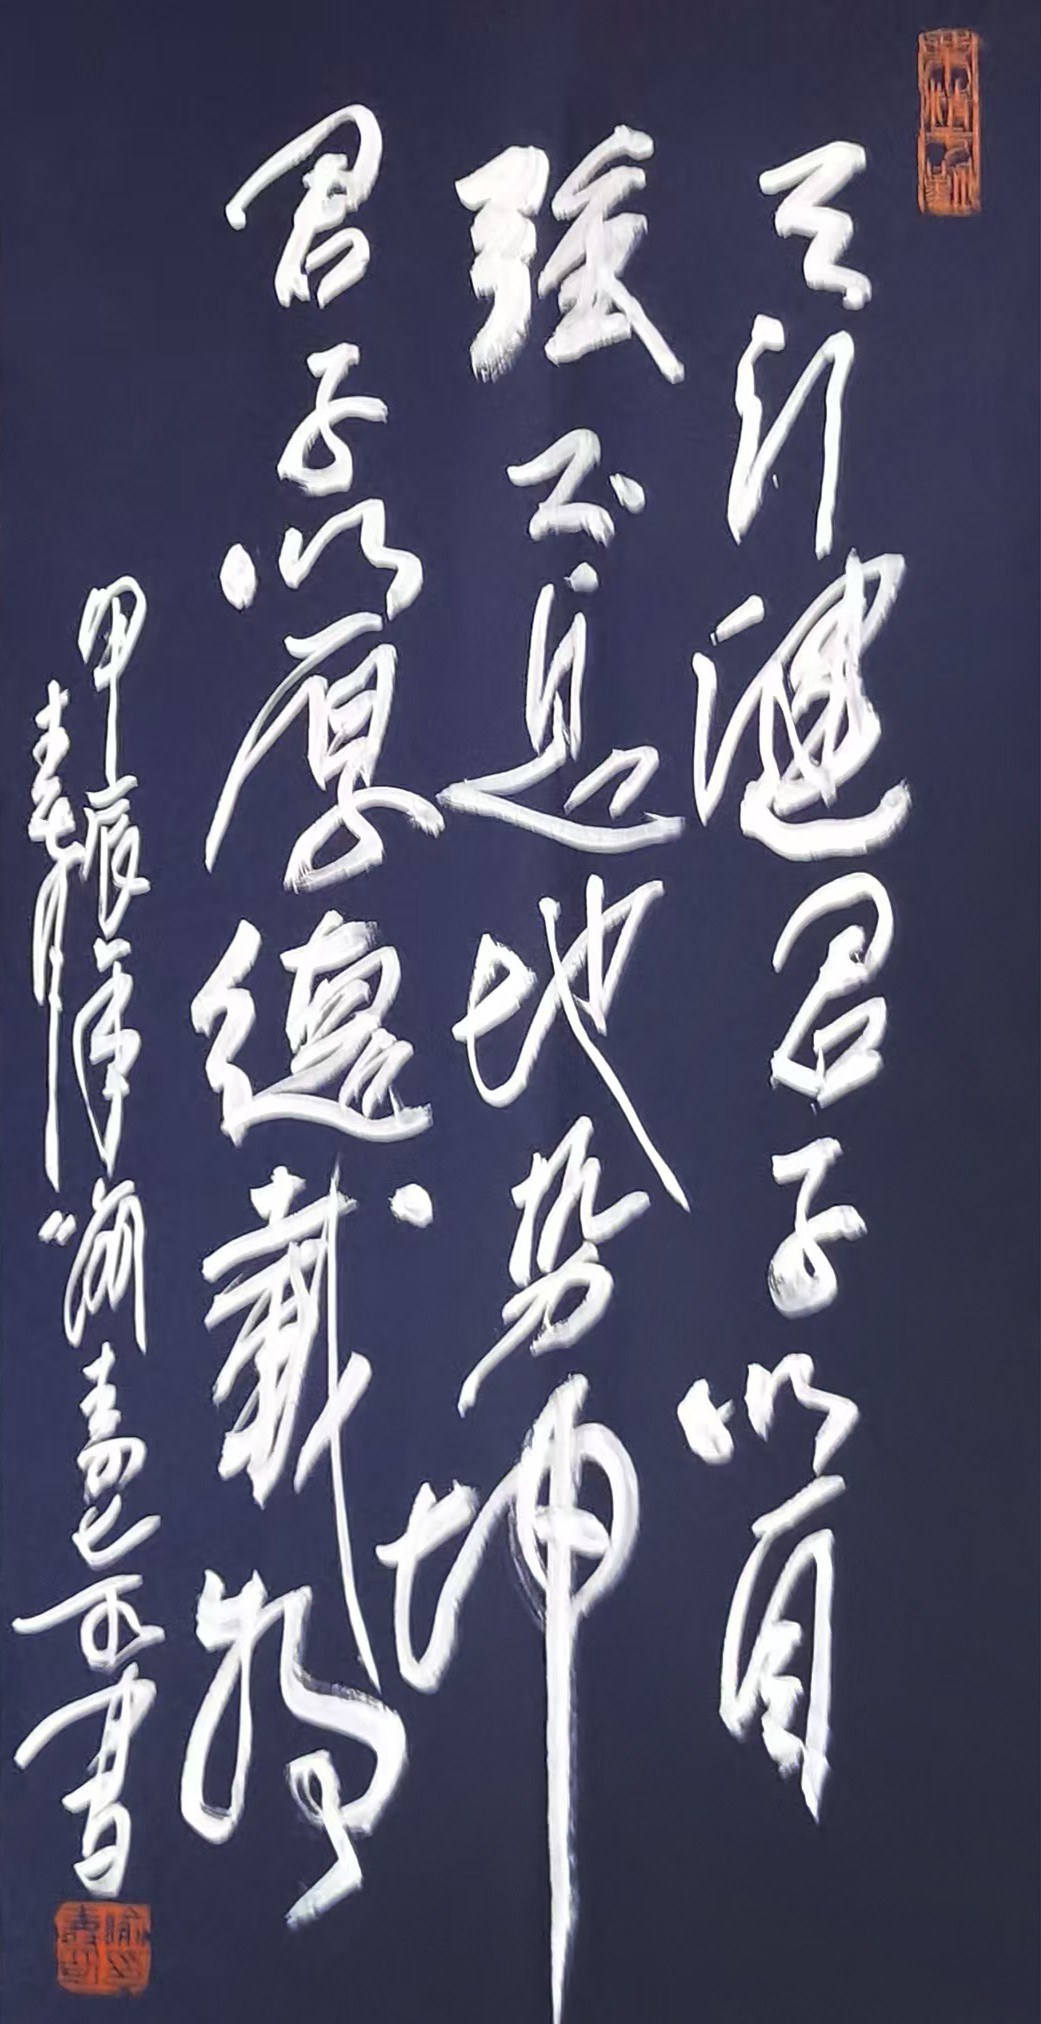 天行健君子以自
强不息地势坤
君子以厚德载物
甲辰年 书